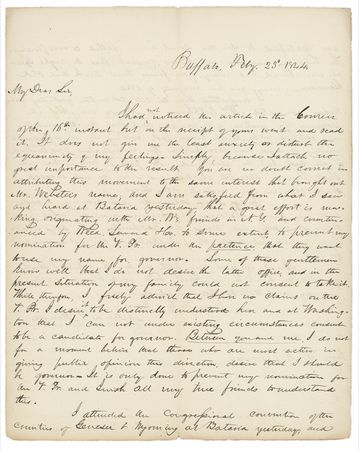 Buffalo, Feby. 25th 1844.
My Dear Sir,
I had not noticed the article in the Courier
of the 16th instant but on the receipt of yours went and read
it. It does not give me the least anxiety or disturb the
equanimity of my feelings. Simply because I attach no
great importance to the result. You are no doubt correct in
attributing this movement to the same interest that brought out
Mr. Webster's name, and I am satisfied from what I saw
and heard at Batavia yesterday that a great effort is ma-
king originating with Mr. W's friends in N.Y. and counte-
nanced by Weed, Seward & Co. to some extent, to prevent my
nomination for the V.P. under the pretence that they want
to use my name for governor. Some of these gentlemen
know well that I do not desire the latter office, and in the
present situation of my family could not consent to take it.
While therefore, I freely admit that I have no claims on the
V.P. I desire it to be distinctly understood here and at Washing-
ton that I can not under existing circumstances consent
to be a candidate for governor. Between you and me, I do not
for a moment believe that those who are most active in
giving public opinion this direction, desire that I should
be governor. It is only done to prevent my nomination for
the V.P. and I wish all my true friends to understand
this.
I attended the Congressional convention of the
counties of Genesee & Wyoming at Batavia yesterday, and